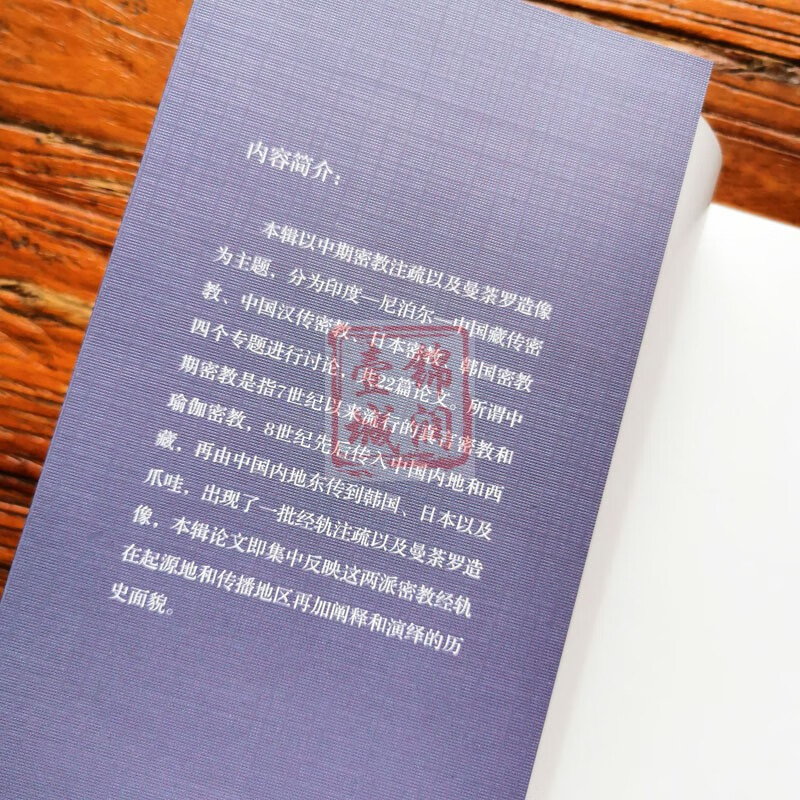 内容简介：
本辑以中期密教注疏以及曼荼罗造像
为主题，分为印度—尼泊尔—中国藏传密
教、中国汉传密教、日本密教、韩国密教
四个专题进行讨论，共22篇论文。所谓中
期密教是指7世纪以来流行的真言密教和
瑜伽密教，8世纪先后传入中国内地和西
藏，再由中国内地东传到韩国、日本以及
爪哇，出现了一批经轨注疏以及曼荼罗造
像，本辑论文即集中反映这两派密教经轨
在起源地和传播地区再加阐释和演绎的历
史面貌。